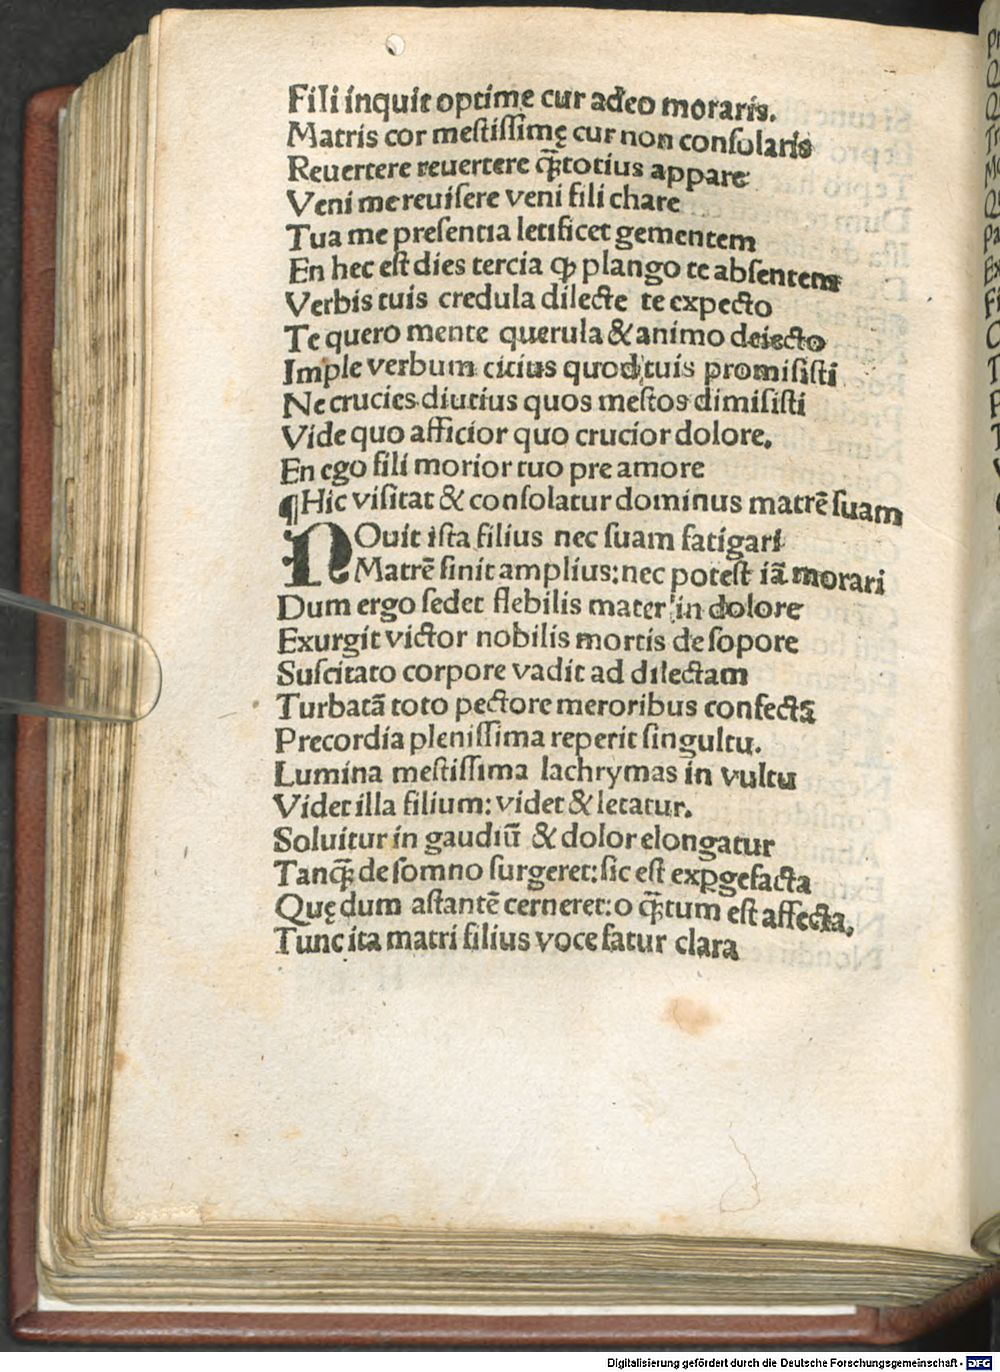 Fili inquit optime cur adeo moraris.
Matris cor mestiſſimę cur non conſolaris
Reuertere reuertere q̃ꝫtotius appare
Veni me reuiſere veni fili chare
Tua me preſentia letificet gementem
En hec eſt dies tercia ꝙ plango te abſentem
Verbis tuis credula dilecte te expecto
Te quero mente querula & animo deiecto
Imple verbum citius quod tuis promiſiſti
Ne crucies diutius quos meſtos dimiſiſti
Vide quo afficior quo crucior dolore.
En ego fili morior tuo pre amore
¶Hic viſitat & conſolatur dominus matrē ſuam
NOuit iſta filius nec ſuam fatigari
Matrē ſinit amplius: nec poteſt iā morari
Dum ergo ſedet flebilis mater in dolore
Exurgit victor nobilis mortis de ſopore
Suſcitato corpore vadit ad dilectam
Turbatā toto pectore meroribus confectā
Precordia pleniſſima reperit ſingultu.
Lumina meſtiſſima lachrymas in vultu
Videt illa filium: videt & letatur.
Soluitur in gaudiū & dolor elongatur
Tanq̃ꝫ de ſomno ſurgeret: ſic eſt exꝑgefacta
Quę dum aſtantē cerneret: o q̃ꝫtum eſt affecta.
Tunc ita matri filius voce fatur clara
Digitalisierung gefördert durch die Deutsche Forschungsgemeinschaft - DFG